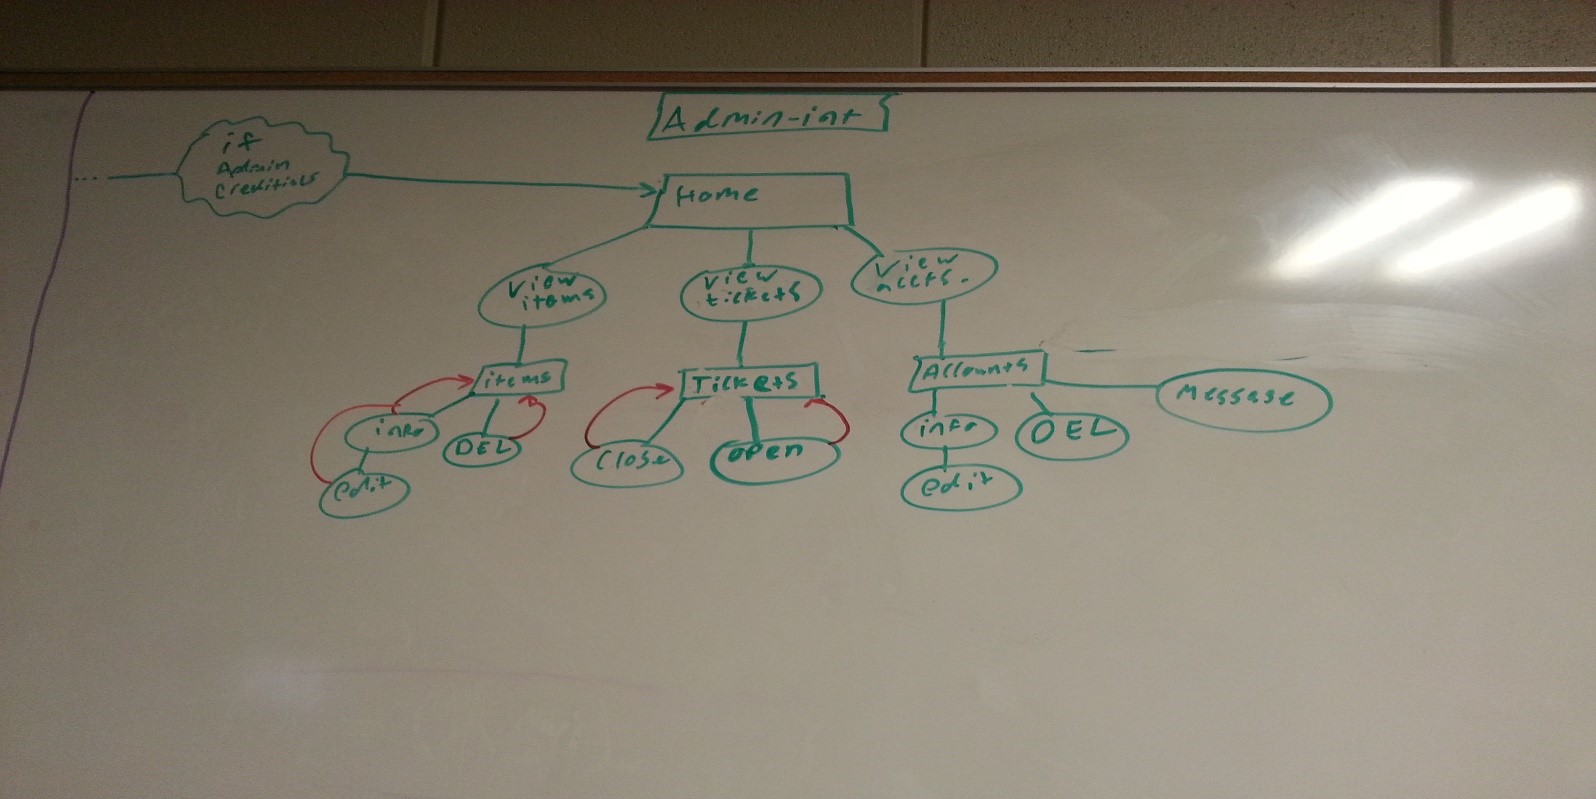 Admin-int
if
Admin
Creditials
Home
View
items
View
tickets
View
accts.
items
Tickets
Accounts
Message
info
DEL
Close
open
info
DEL
edit
edit